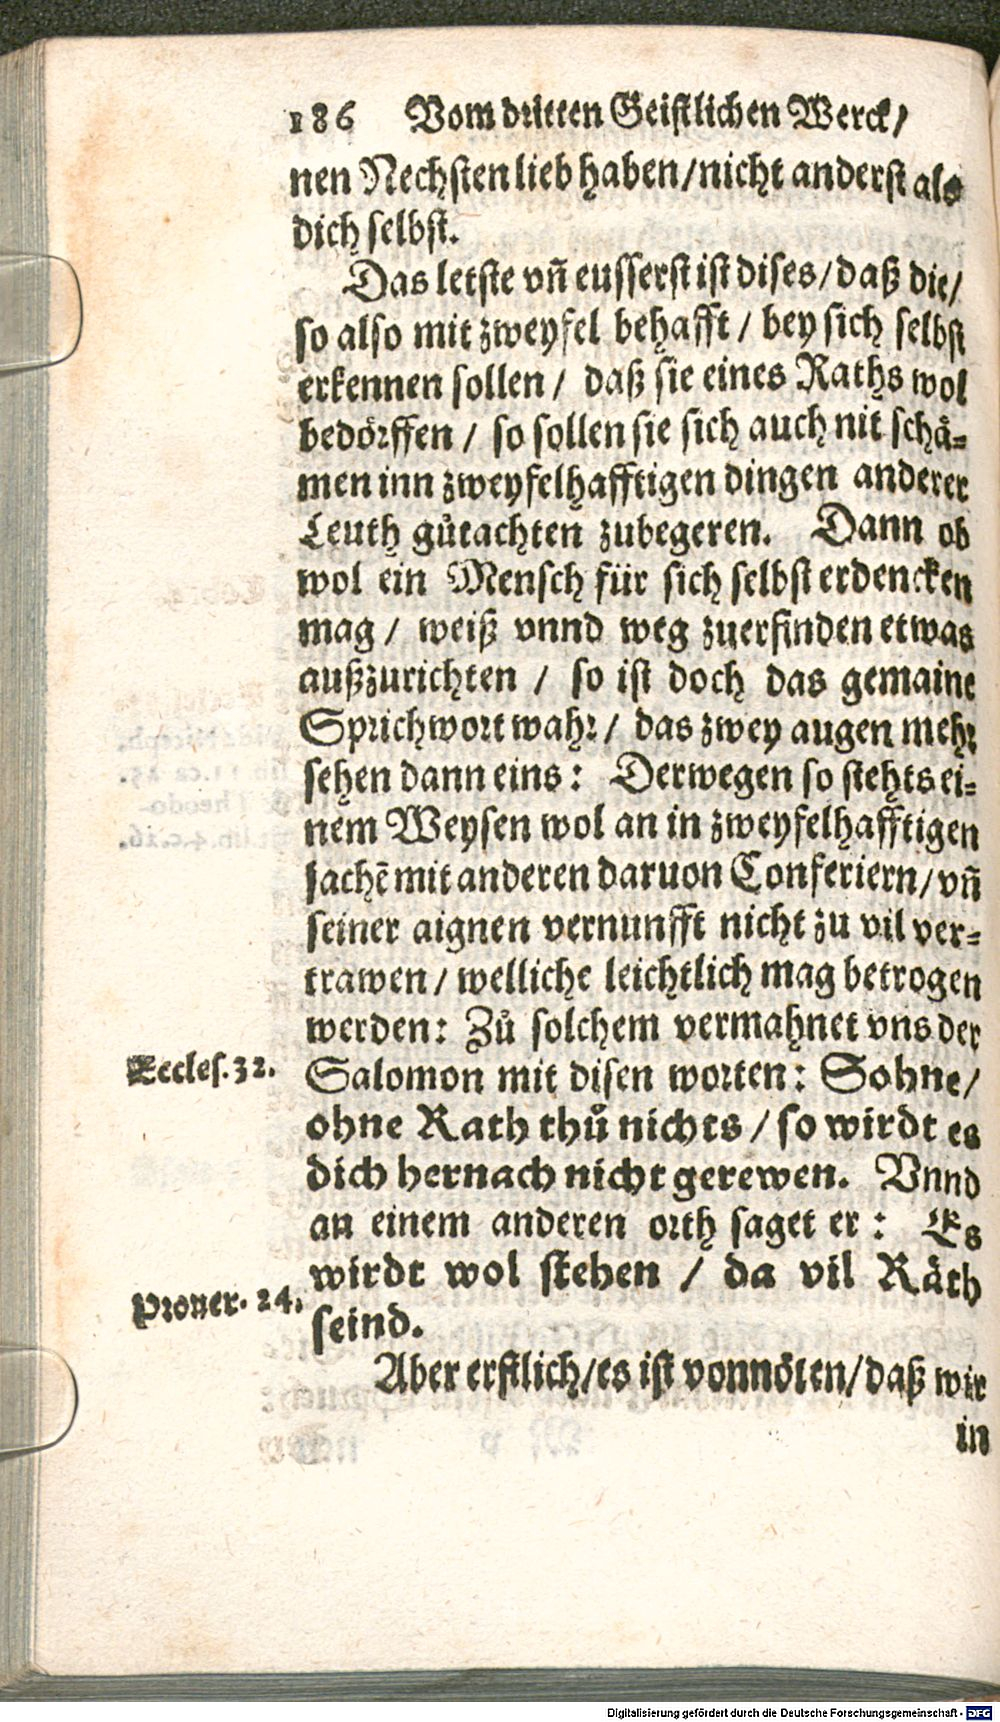 186 Vom dritten Geistlichen Werck/
nen Nechsten lieb haben/nicht anderst als
dich selbst.
Das letste vñ eusserst ist dises/daß die/
so also mit zweyfel behafft / bey sich selbst
erkennen sollen / daß sie eines Raths wol
bedörffen / so sollen sie sich auch nit schä-
men inn zweyfelhafftigen dingen anderer
Leuth gůtachten zubegeren. Dann ob
wol ein Mensch für sich selbst erdencken
mag / weiß vnnd weg zuerfinden etwas
außzurichten / so ist doch das gemaine
Sprichwort wahr / das zwey augen mehr
sehen dann eins: Derwegen so stehts ei-
nem Weysen wol an in zweyfelhafftigen
sachẽ mit anderen daruon Conferiern/vñ
seiner aignen vernunfft nicht zu vil ver-
trawen / welliche leichtlich mag betrogen
werden: Zů solchem vermahnet vns der
Eccles. 32. Salomon mit disen worten: Sohne/
ohne Rath thů nichts / so wirdt es
dich hernach nicht gerewen. Vnnd
an einem anderen orth saget er: Es
wirdt wol stehen / da vil Räth
Prouer. 24. seind.
Aber erstlich/es ist vonnöten/daß wir
in
Digitalisierung gefördert durch die Deutsche Forschungsgemeinschaft - DFG